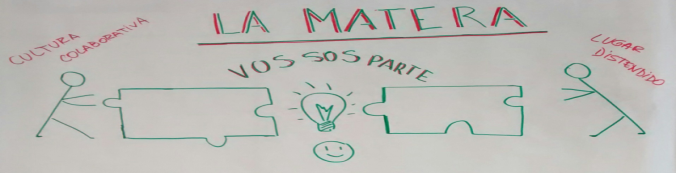 LA MATERA
CULTURA
COLABORATIVA
VOS SOS PARTE
LUGAR
DISTENDIDO